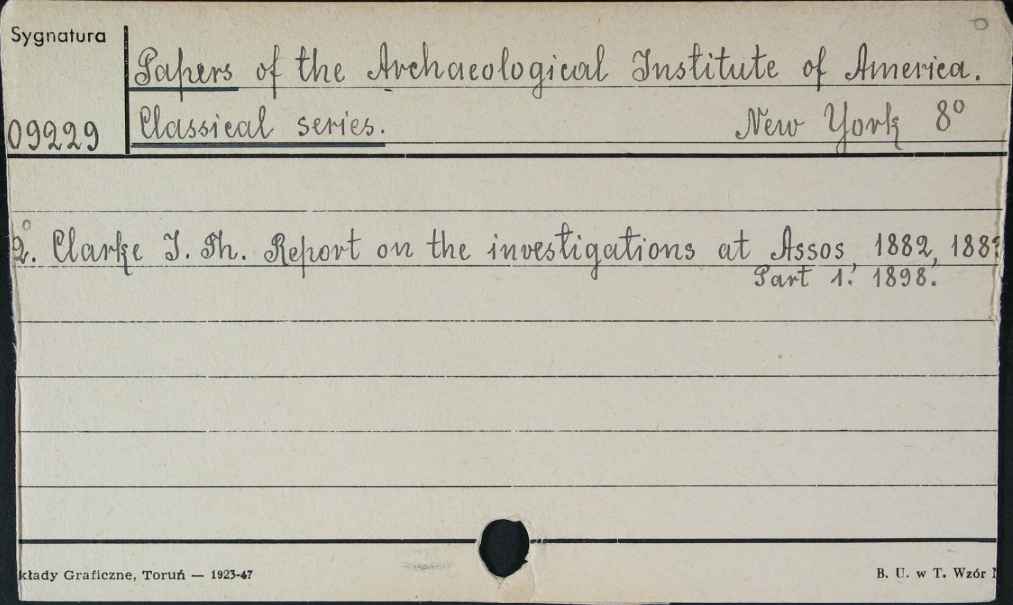 Sygnatura
Papers of the Archaeological Institute of America.
09229
Classical series. New York 8°
2. Clarke J. Th. Report on the investigations at Assos, 1882, 188
Part 1. 1898.
kłady Graficzne, Toruń — 1923-47
B. U. w T. Wzór